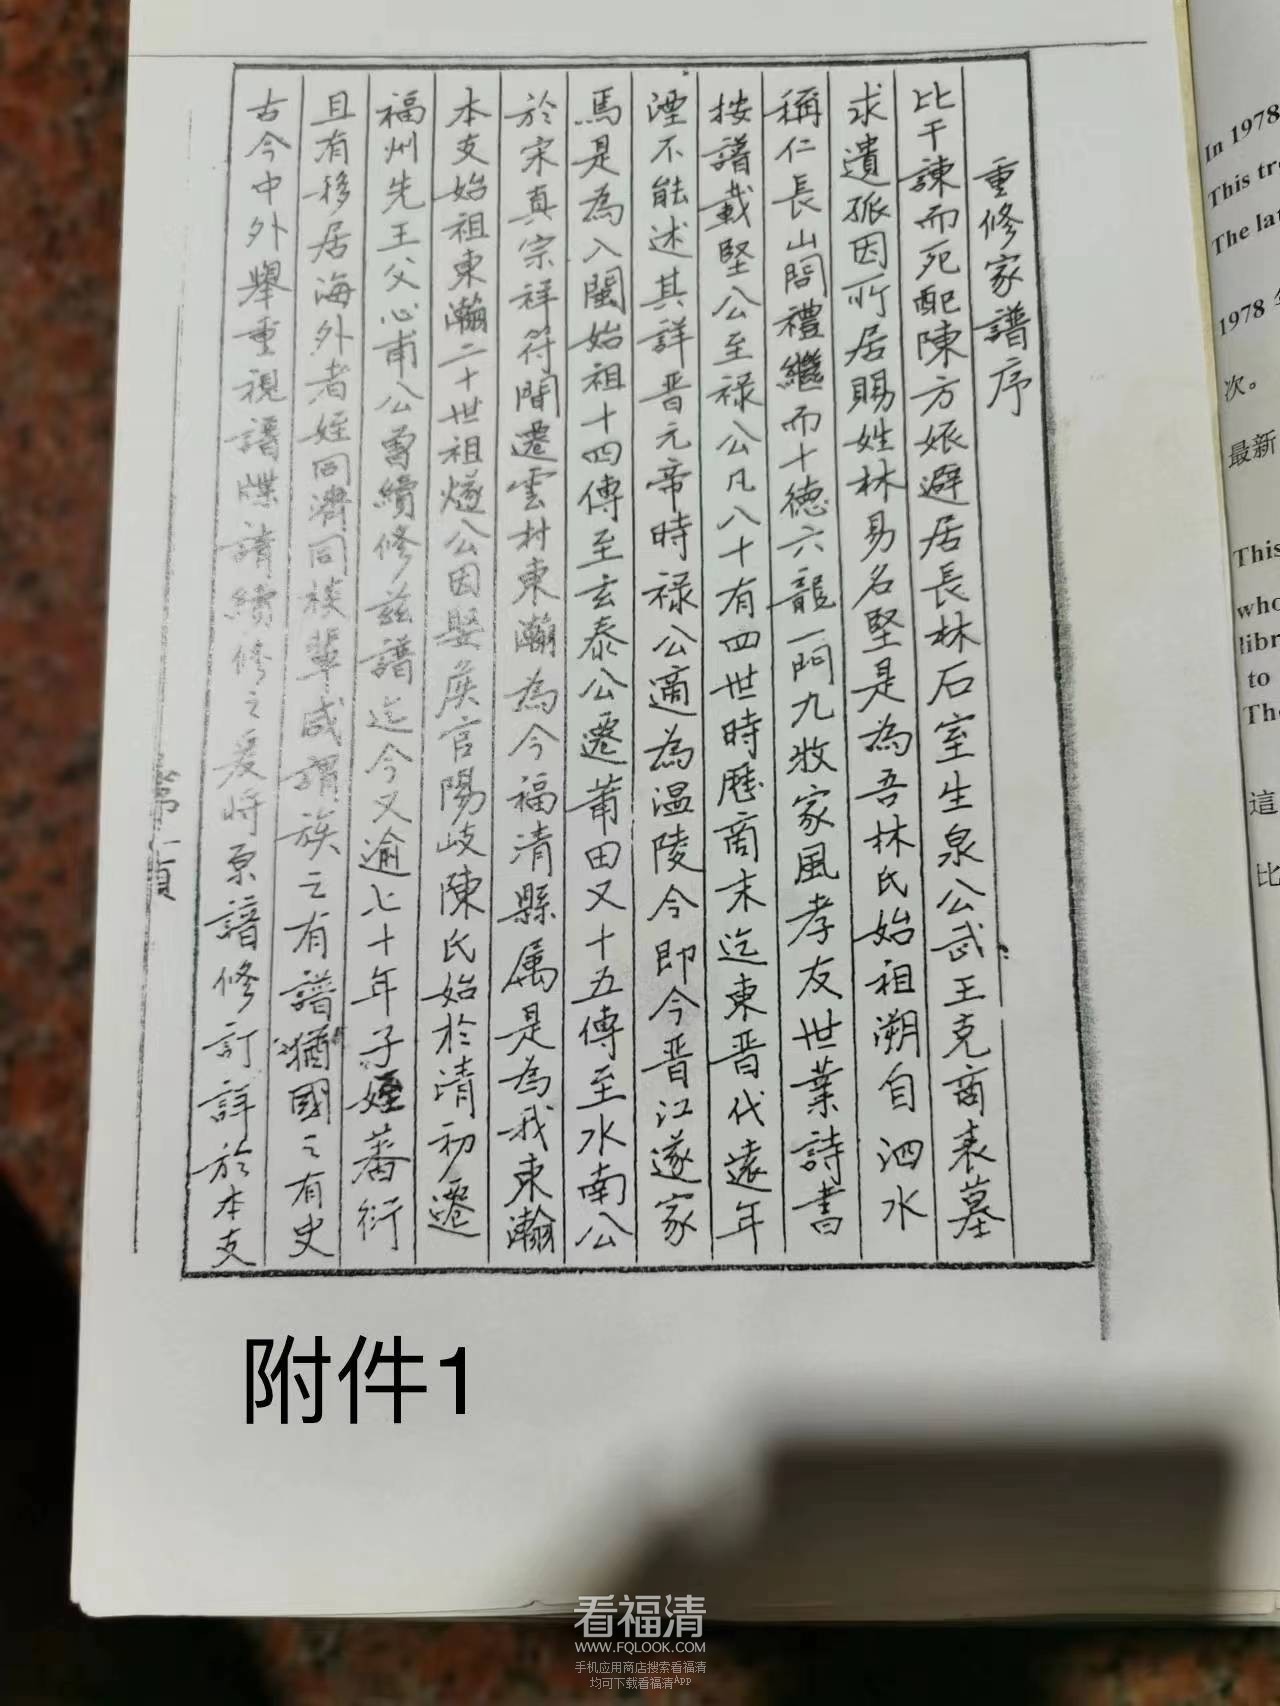 重修家譜序
比干諫而死配陳方娠避居長林石室生泉公武王克商表墓
求遺孤因所居賜姓林易名堅是為吾林氏始祖溯自泗水
稱仁長山問禮繼而十德六龍一門九牧家風孝友世業詩書
按譜載堅公至祿公凡八十有四世時歷商末迄東晉代遠年
湮不能述其詳晉元帝時祿公適為温陵今即今晉江遂家
馬是為入閩始祖十四傳至玄泰公遷莆田又十五傳至水南公
於宋真宗祥符間遷雲村東瀚為今福清縣属是為我東瀚
本支始祖東瀚二十世祖燧公因娶侯官陽岐陳氏始於清初遷
福州先王父心甫公曾續修茲譜迄今又逾七十年子姪蕃衍
且有移居海外者姪同濟同棪輩咸謂族之有譜猶國之有史
古今中外舉重視譜牒請續修之爰將原譜修訂詳於本支
第一頁
附件1
In 1978
This tre
The lat
1978
次。
最新
This
who
libr
to
The
這
比
看福清
WWW.FQLOOK.COM
手机应用商店搜索看福清
均可下载看福清App